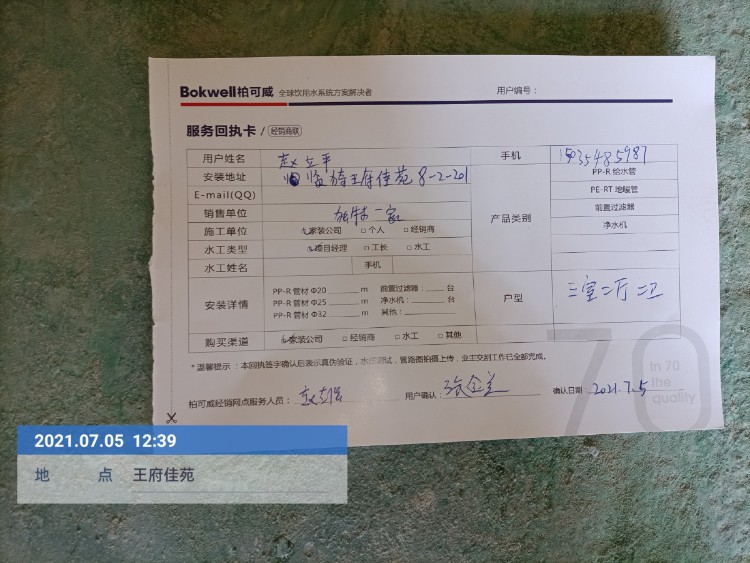 Bokwell柏可威 全球饮用水系统方案解决者 用户编号：
服务回执卡 / 经销商联
用户姓名 赵立平 手机
安装地址 临猗王府佳苑 8-2-201 PP-R 给水管
E-mail(QQ) PE-RT 地暖管
销售单位 独特一家 产品类别 前置过滤器
施工单位 家装公司 □ 个人 □ 经销商 净水机
水工类型 项目经理 □ 工长 □ 水工
水工姓名 手机
安装详情 户型 三室二厅二卫
PP-R 管材 Φ20 ______ m 前置过滤器：____ 台
PP-R 管材 Φ25 ______ m 净水机：____ 台
PP-R 管材 Φ32 ______ m 其他：________
购买渠道 家装公司 □ 经销商 □ 水工 □ 其他
*温馨提示：本回执签字确认后表示真伪验证，水压测试，管路图拍摄上传，业主交割工作已全部完成。
70
In 70
the
quality
柏可威经销网点服务人员： 用户确认： 确认日期 2021.7.5
2021.07.05 12:39
地 点 王府佳苑